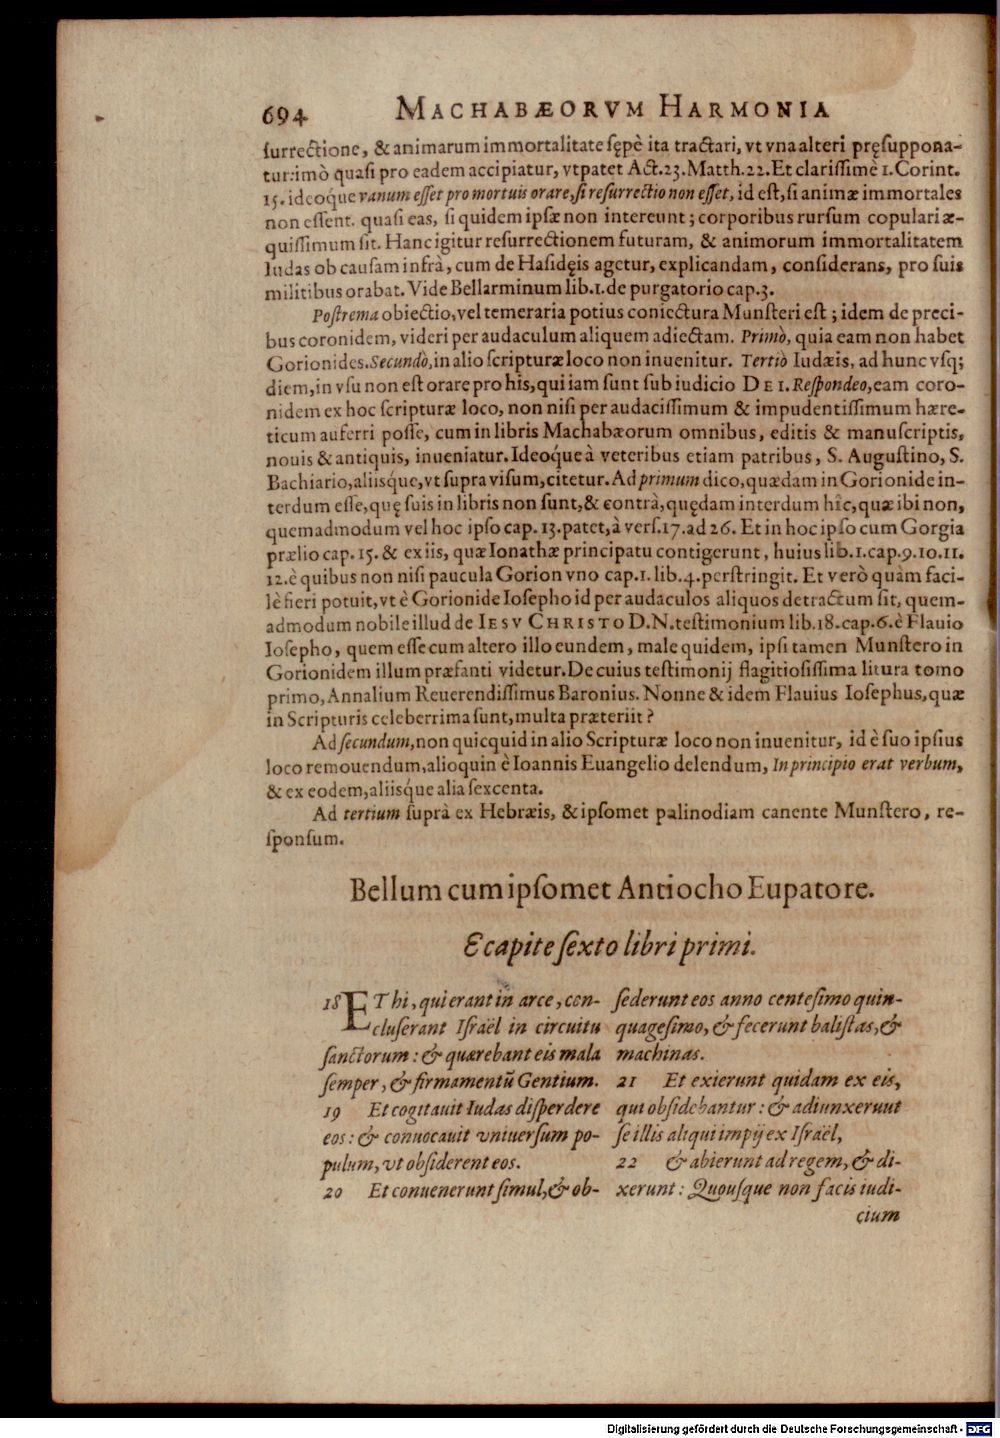 694 MACHABÆORVM HARMONIA
ſurrectione, & animarum immortalitate ſępè ita tractari, vt vna alteri pręſuppona-
tur: imò quaſi pro eadem accipiatur, vt patet Act. 23. Matth. 22. Et clariſſimè 1. Corint.
15. ideoq́ue vanum eſſet pro mortuis orare, ſi reſurrectio non eſſet, id eſt, ſi animæ immortales
non eſſent. quaſi eas, ſiquidem ipſæ non intereunt; corporibus rurſum copulari æ-
quiſſimum ſit. Hanc igitur reſurrectionem futuram, & animorum immortalitatem
Iudas ob cauſam infrà, cum de Haſidęis agetur, explicandam, conſiderans, pro ſuis
militibus orabat. Vide Bellarminum lib. 1. de purgatorio cap. 3.
Poſtrema obiectio, vel temeraria potius coniectura Munſteri eſt; idem de preci-
bus coronidem, videri per audaculum aliquem adiectam. Primò, quia eam non habet
Gorionides. Secundò, in alio ſcripturæ loco non inuenitur. Tertiò Iudæis, ad hunc vſq;
diem, in vſu non eſt orare pro his, qui iam ſunt ſub iudicio DEI. Reſpondeo, eam coro-
nidem ex hoc ſcripturæ loco, non niſi per audaciſſimum & impudentiſſimum hære-
ticum auferri poſſe, cum in libris Machabæorum omnibus, editis & manuſcriptis,
nouis & antiquis, inueniatur. Ideoq́ue à veteribus etiam patribus, S. Auguſtino, S.
Bachiario, aliisq́ue, vt ſupra viſum, citetur. Ad primum dico, quædam in Gorionide in-
terdum eſſe, quę ſuis in libris non ſunt, & contrà, quędam interdum hîc, quæ ibi non,
quemadmodum vel hoc ipſo cap. 13. patet, à verſ. 17. ad 26. Et in hoc ipſo cum Gorgia
prælio cap. 15. & ex iis, quæ Ionathæ principatu contigerunt, huius lib. 1. cap. 9. 10. 11.
12. è quibus non niſi paucula Gorion vno cap. 1. lib. 4. perſtringit. Et verò quàm faci-
lè fieri potuit, vt è Gorionide Ioſepho id per audaculos aliquos detractum ſit, quem-
admodum nobile illud de IESV CHRISTO D. N. teſtimonium lib. 18. cap. 6. è Flauio
Ioſepho, quem eſſe cum altero illo eundem, male quidem, ipſi tamen Munſtero in
Gorionidem illum præfanti videtur. De cuius teſtimonij flagitioſiſſima litura tomo
primo, Annalium Reuerendiſſimus Baronius. Nonne & idem Flauius Ioſephus, quæ
in Scripturis celeberrima ſunt, multa præteriit?
Ad ſecundum, non quicquid in alio Scripturæ loco non inuenitur, id è ſuo ipſius
loco remouendum, alioquin è Ioannis Euangelio delendum, In principio erat verbum,
& ex eodem, aliisq́ue alia ſexcenta.
Ad tertium ſuprà ex Hebræis, & ipſomet palinodiam canente Munſtero, re-
ſponſum.
Bellum cum ipſomet Antiocho Eupatore.
E capite ſexto libri primi.
18 ET hi, qui erant in arce, con-
cluſerant Iſraël in circuitu
ſanctorum: & quærebant eis mala
ſemper, & firmamentũ Gentium.
19 Et cogitauit Iudas diſperdere
eos: & conuocauit vniuerſum po-
pulum, vt obſiderent eos.
20 Et conuenerunt ſimul, & ob-
ſederunt eos anno centeſimo quin-
quageſimo, & fecerunt baliſtas, &
machinas.
21 Et exierunt quidam ex eis,
qui obſidebantur: & adiunxerunt
ſe illis aliqui impij ex Iſraël,
22 & abierunt ad regem, & di-
xerunt: Quouſque non facis iudi-
cium
Digitalisierung gefördert durch die Deutsche Forschungsgemeinschaft - DFG